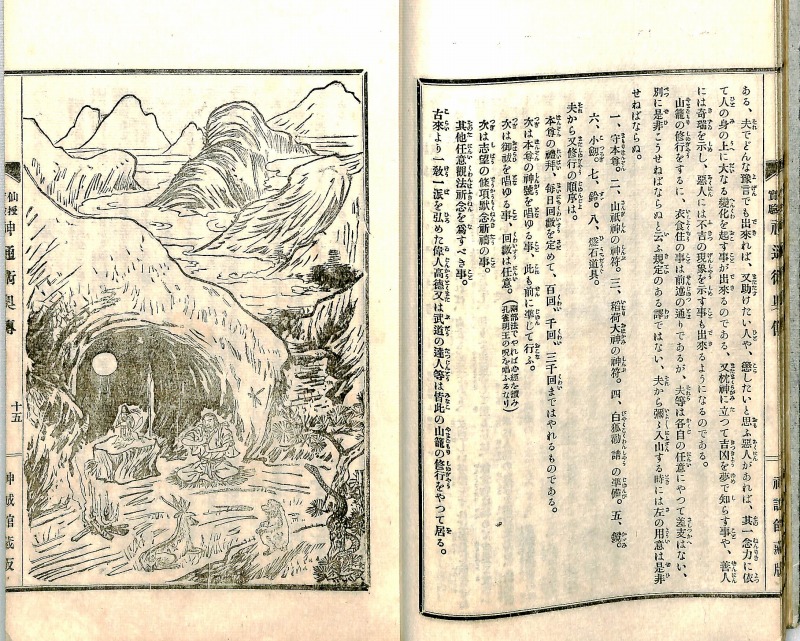 ある、夫でどんな豫言でも出來れば、又助けたい人や、懲したいと思ふ惡人があれば、其一念力に依
て人の身の上に大なる變化を起す事が出來るのである、又枕神に立つて吉凶を夢で知らす事や、善人
には奇瑞を示し、惡人には不吉の現象を示す事も出來るようになるのである。
山籠の修行をするに、衣食住の事は前述の通りであるが、夫等は各自の任意にやつて差支はない、
別に是非こうせねばならぬと云ふ規定のある譯ではない、夫から彌々入山する時には左の用意は是非
せねばならぬ。
一、守本尊。二、山祇神の神符。三、稻荷大神の神符。四、白狐勸請の準備。五、鏡。
六、小劍。七、鈴。八、燧石道具。
夫から又修行の順序は。
本尊の禮拜、毎日數を定めて、百回、千回、三千回まではやれるものである。
次は本尊の神號を唱ゆる事、此も前に準じて行ふ。
次は御祓を唱ゆる事、回數は任意。(兩部法でやれば心經を讀み孔雀明王の呪を唱ふるなり)
次は志望の條項默念祈禱の事。
其他任意觀法祈念を爲すべき事。
古來より一敎一派を弘めた偉人高德又は武道の達人等は皆此の山籠の修行をやつて居る。
神通術奧傳
十五
神誠館藏版